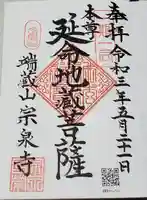 奉拝 令和三年五月二十一日
本尊
延命地蔵菩薩
瑞蔵山宗泉寺